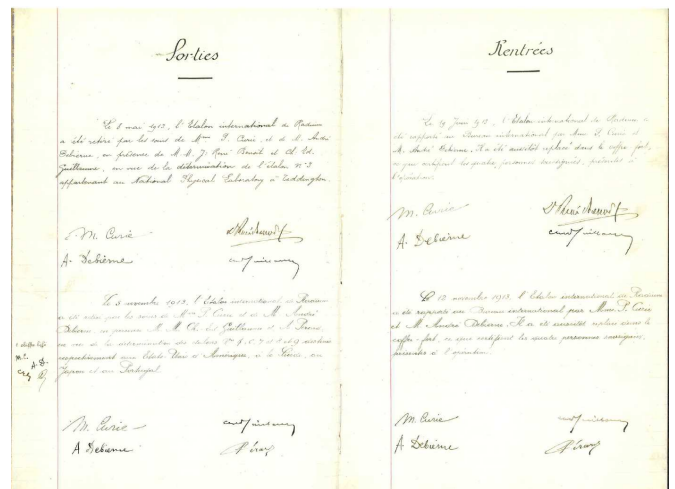 Sorties
Le 8 mai 1913, l'Etalon international de Radium
a été retiré par les soins de Mme P. Curie, et de M. André
Debierne, en présence de M M. J. René Benoît et Ch. Ed.
Guillaume, en vue de la détermination de l'étalon n° 3
appartenant au National Physical Laboratory à Teddington.
M. Curie
A. Debierne
Le 5 novembre 1913, l'Etalon international de Radium
a été retiré par les soins de Mme P. Curie et de M. André
Debierne, en présence M. M. Ch. Ed. Guillaume et A. Pérard
en vue de la détermination des étalons
respectivement aux Etats Unis d'Amérique, à la Suède, au
Japon et au Portugal.
M. Curie
A Debierne
Rentrées
Le 19 Juin 1913, l'Etalon international de Radium a
été rapporté au Bureau international par Mme P. Curie et
M. André Debierne. Il a été aussitôt replacé dans le coffre-fort,
ce que certifient les quatre personnes soussignées, présentes à
l'opération.
M. Curie
A Debierne
Le 12 novembre 1913, l'Etalon international de Radium
a été rapporté au Bureau international par Mme P. Curie
et M André Debierne. Il a été aussitôt remis dans le
coffre-fort, ce que certifient les quatre personnes soussignées,
présentes à l'opération.
M. Curie
A Debierne